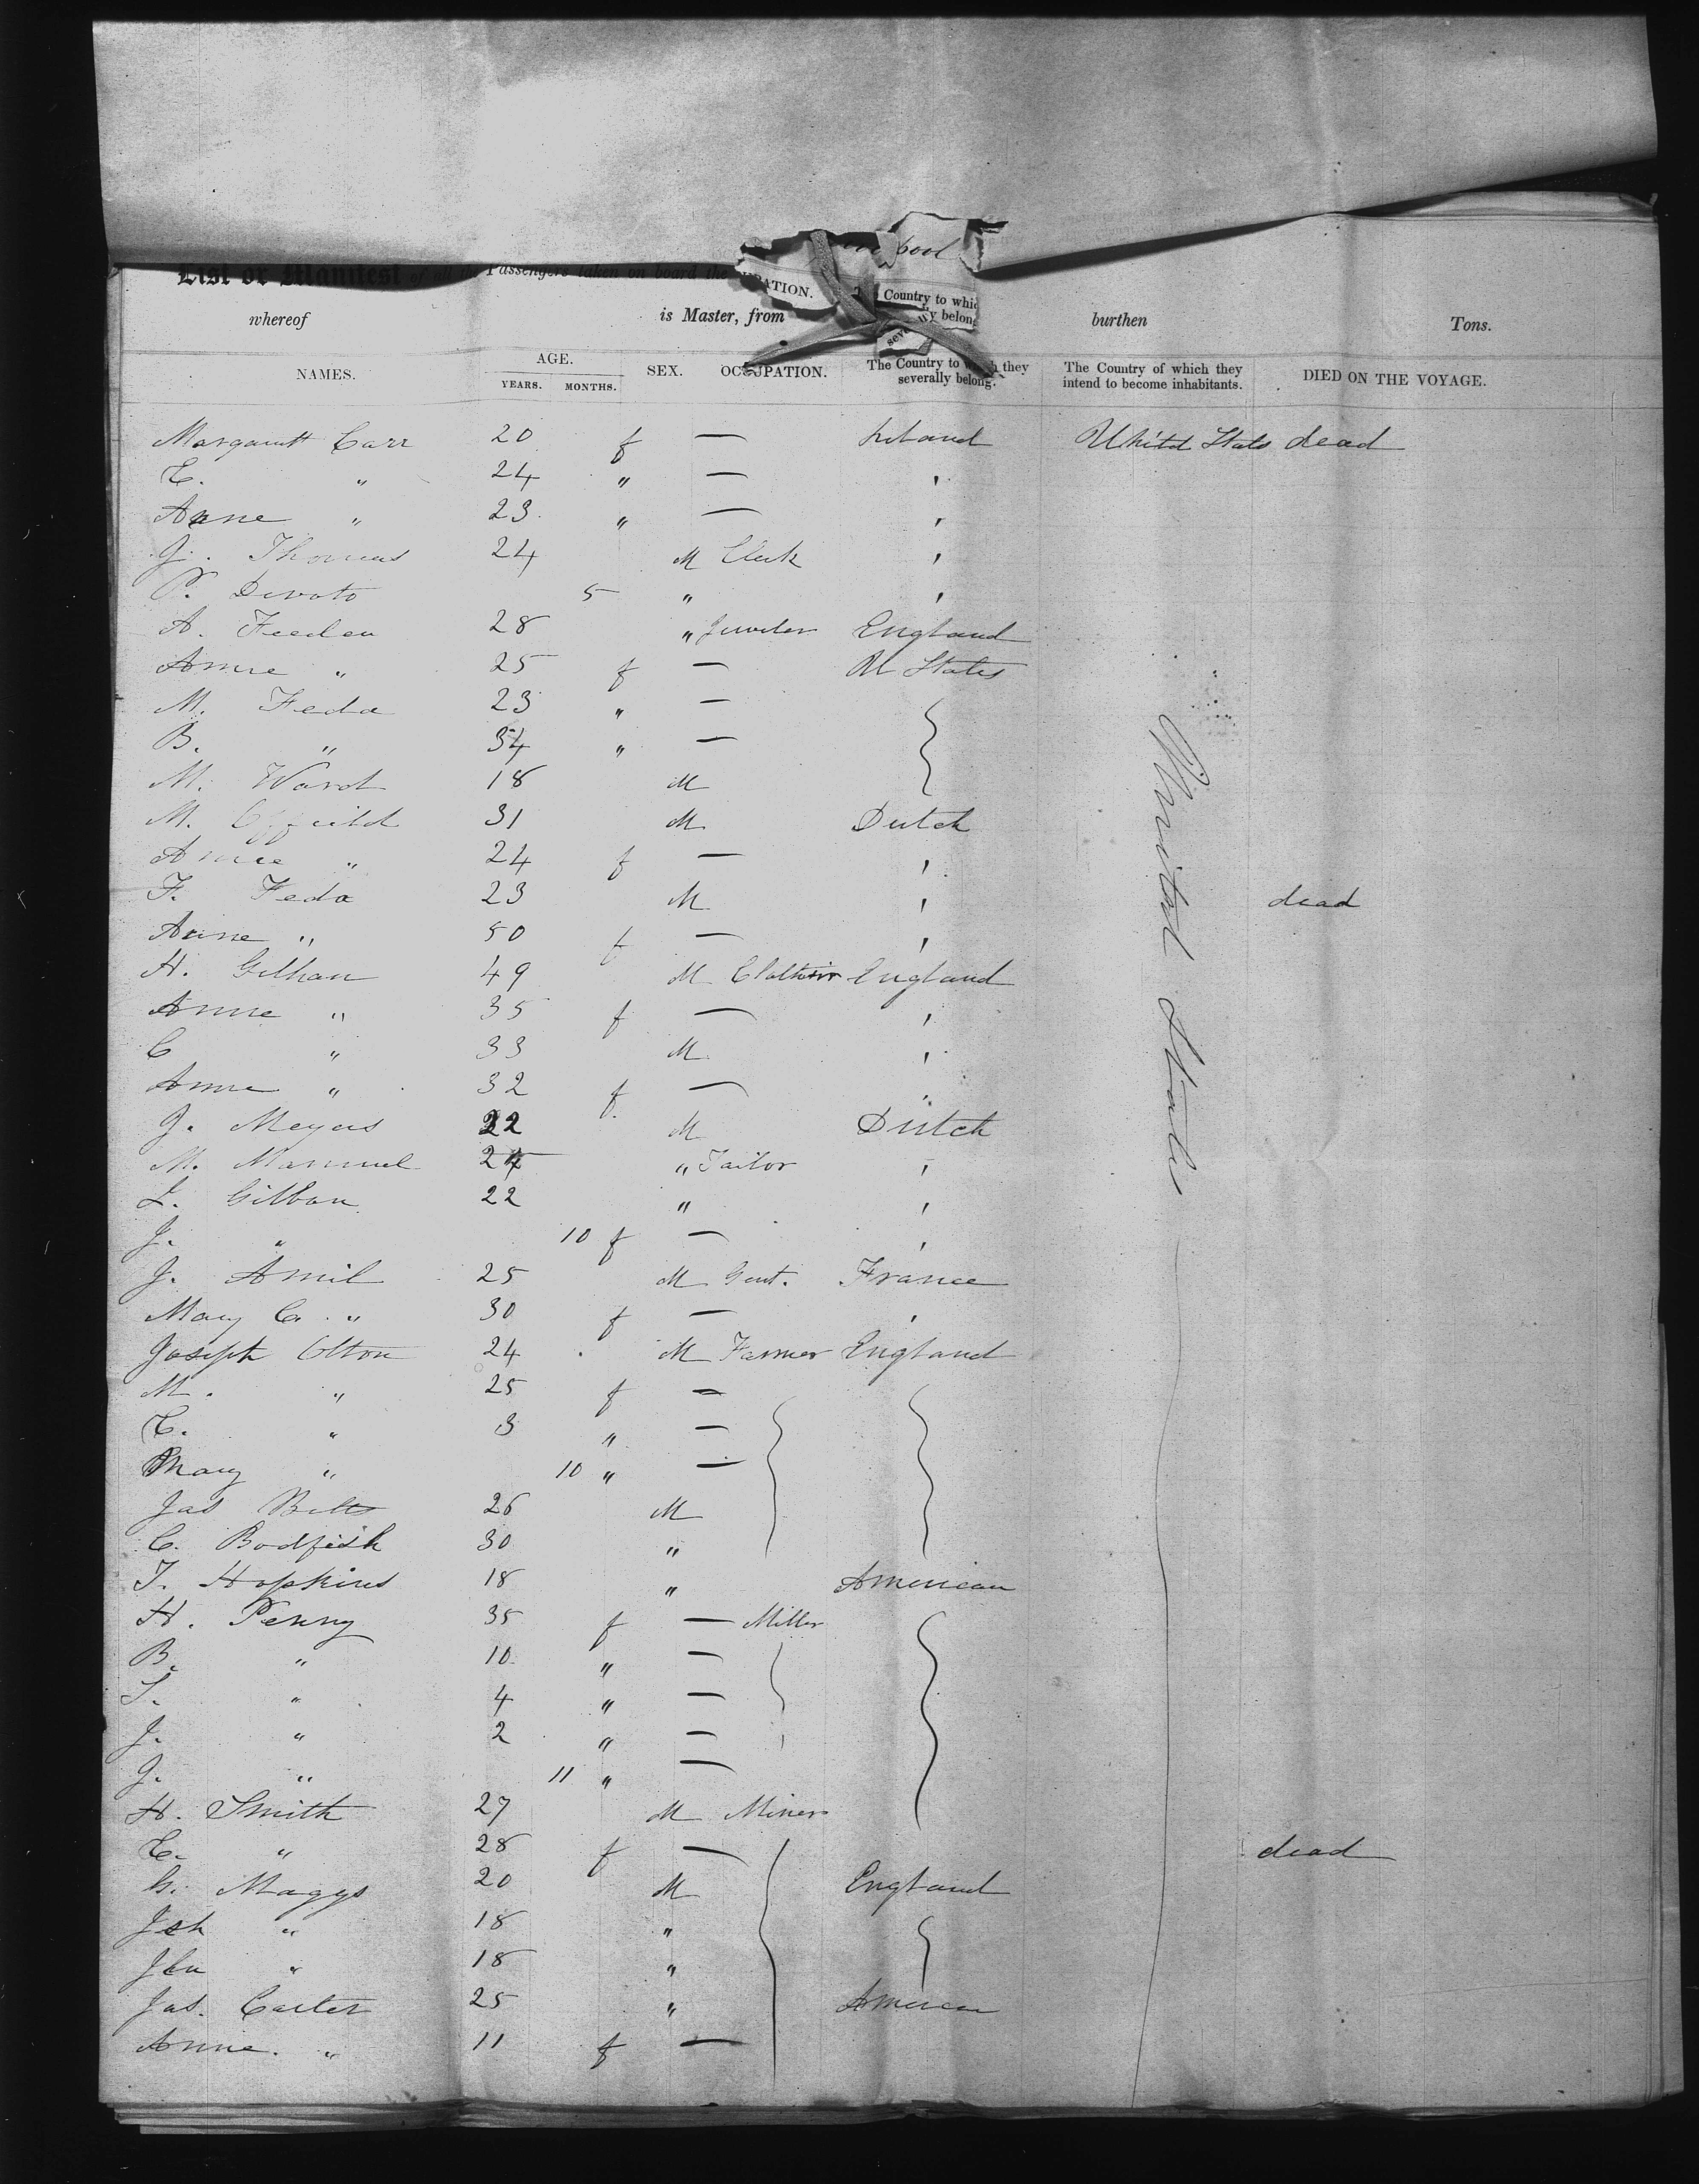 pool
PATION.
Country to whic
ly belong
seve
List or Manifest of all the Passengers taken on board the
whereof is Master, from burthen Tons.
NAMES. AGE. YEARS. MONTHS. SEX. OCCUPATION. The Country to which they severally belong. The Country of which they intend to become inhabitants. DIED ON THE VOYAGE.
Margarett Carr 20 f — Ireland United States dead
E. " 24 " — '
Anne " 23 " — '
J. Thomas 24 M Clerk '
P. Devoto 5 " '
A. Feeden 28 " Jeweler England
Anne " 25 f — U States
M. Feda 23 " —
B. " 34 " —
M. Ward 18 M
M. 31 M Dutch
Annie " 24 f — '
F. Feda 23 M ' dead
Anne " 50 f — '
H. Gilhan 49 M Clothier England
Anne " 35 f — '
C " 33 M '
Anne " 32 f — "
J. Meyers 22 M Dutch
M. Mammel 24 " Tailor '
L. Gilban 22 " '
J. " 10 f — '
J. Amil 25 M Gent. France
Mary C. " 30 f — '
Joseph Olton 24 M Farmer England
M. " 25 f —
E. " 3 " —
Mary " 10 " —
Jas Belts 26 M
C. Bodfish 30 "
T. Hopkins 18 " American
H. Penny 35 f — Miller
B. " 10 " —
S. " 4 " —
J. " 2 " —
J. " 11 " —
H. Smith 27 M Miner
E. " 28 f — dead
G. Maggs 20 M England
Joh " 18 "
Jln " 18 "
Jas. Carter 25 " American
Annie. " 11 f —
United States